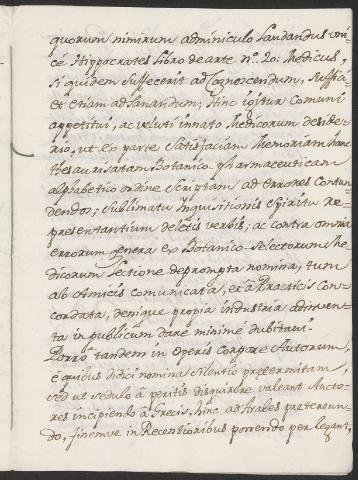 quorum nimirum adminiculo Laudandus uni-
cè Hippocrates Libro de arte n.º 20: Medicus,
si quidem suffecerit ad Cognoscendum, suffi
et etiam ad Sanandum; Hinc igitur comuni
appetitui, ac veluti innato Medicorum deside-
rio, ut ex parte Satisfaciam Memoriam hanc
thesaurisatam Botanico-Pharmaceuticam
alphabetico ordine Scriptam ad errores Confun-
dendos; Sublimatu Inquisitionis Spiritu re-
presentantium verbis; ac contra omnia
errorum genera ex Botanico-Selectorum Me-
dicorum Lectione deprompta nomina, tum
ab Amicis comunicata, et a Practicis Con-
cordata, denique propia industria adinven-
ta in publicum dare minime dubitavi.
Porrò tandem in operis Corpore Autorum,
è quibus didici nomina Silentio pretermitam,
sed ut sedulo à peritis disquirere valeant Aucto-
res incipiendo à Grecis, hinc ad Arabes pretereun-
do, finemve in Recentioribus porrendo per legant,